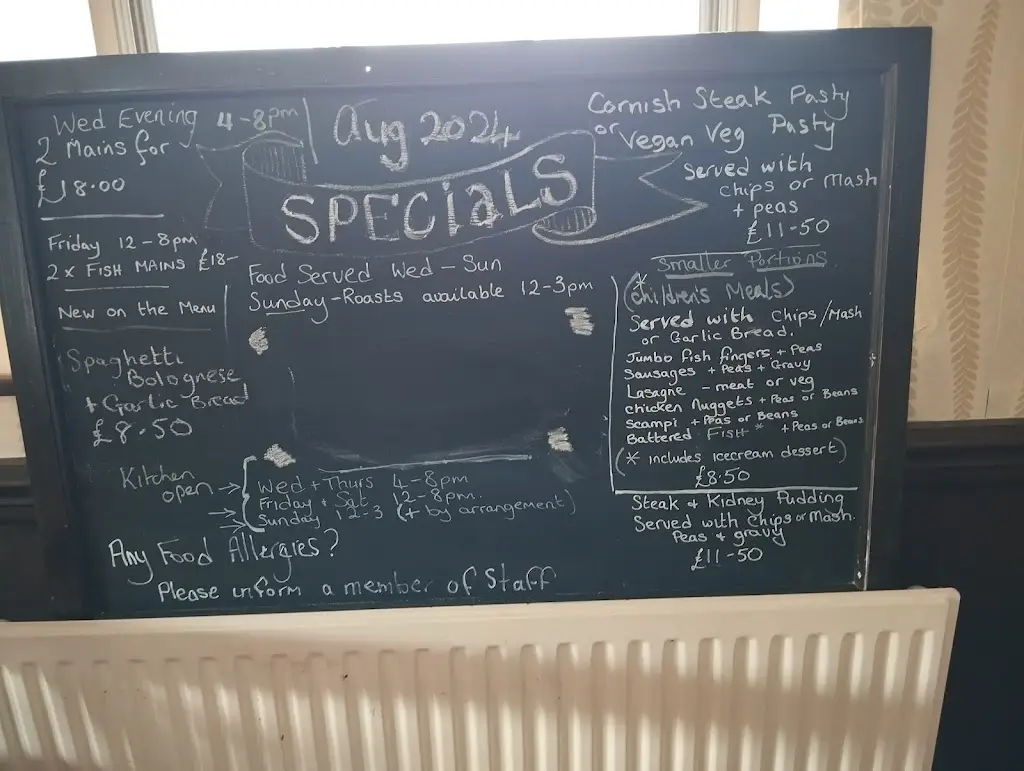 Wed Evening 4-8pm
2 Mains for
£18.00
Friday 12-8pm
2 x FISH MAINS £18-
New on the Menu
Spaghetti
Bolognese
+ Garlic Bread
£8.50
Aug 2024
SPECiaLS
Food Served Wed - Sun
Sunday - Roasts available 12-3pm
Kitchen
open →
Wed + Thurs 4-8pm
Friday + Sat 12-8pm.
Sunday 12-3 (+ by arrangement)
Any Food Allergies?
Please inform a member of Staff
Cornish Steak Pasty
or Vegan Veg Pasty
Served with
chips or Mash
+ peas
£11-50
Smaller Portions
* (children's Meals)
Served with Chips/Mash
or Garlic Bread.
Jumbo fish fingers + Peas
Sausages + Peas + Gravy
Lasagne - meat or veg
chicken Nuggets + Peas or Beans
Scampi + Peas or Beans
Battered Fish * + Peas or Beans
(* includes icecream dessert)
£8.50
Steak & Kidney Pudding
Served with Chips or Mash.
Peas & gravy
£11-50